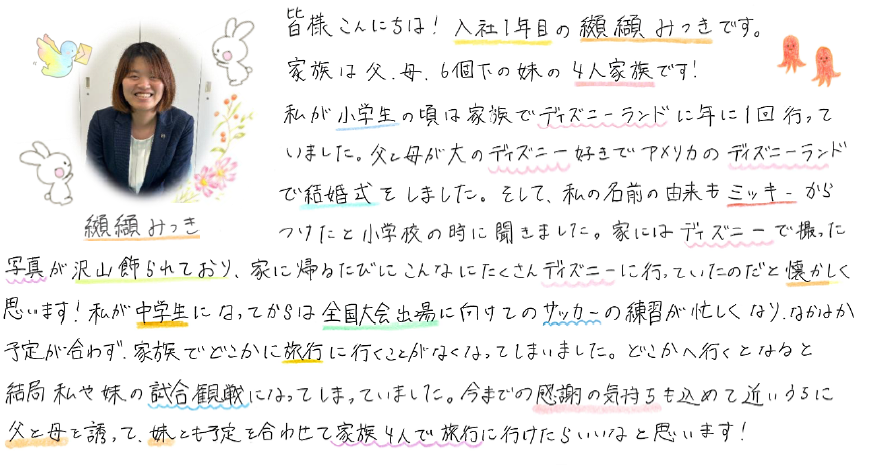 皆様こんにちは！入社1年目の纐纈みつきです。
家族は父、母、6個下の妹の4人家族です！
私が小学生の頃は家族でディズニーランドに年に1回行って
いました。父と母が大のディズニー好きでアメリカのディズニーランド
で結婚式をしました。そして、私の名前の由来もミッキーから
つけたと小学校の時に聞きました。家にはディズニーで撮った
纐纈みつき
写真が沢山飾られており、家に帰るたびにこんなにたくさんディズニーに行っていたのだと懐かしく
思います！私が中学生になってからは全国大会出場に向けてのサッカーの練習が忙しくなり、なかなか
予定が合わず、家族でどこかに旅行に行くことがなくなってしまいました。どこかへ行くとなると
結局私や妹の試合観戦になってしまっていました。今までの感謝の気持ちも込めて近いうちに
父と母を誘って、妹とも予定を合わせて家族4人で旅行に行けたらいいなと思います！